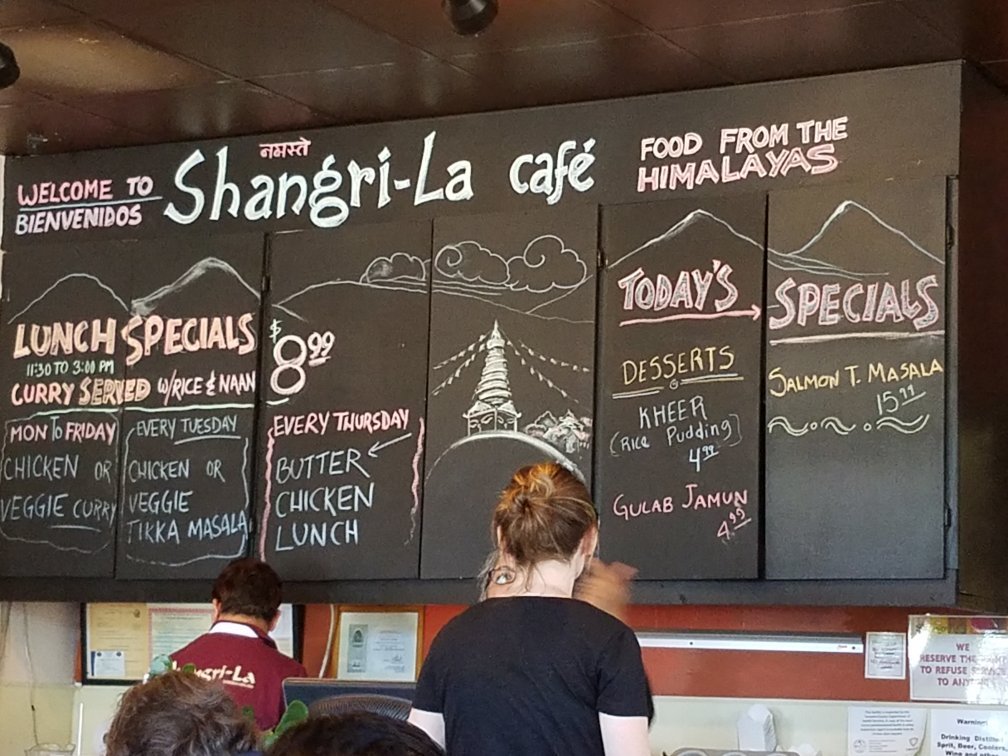 नमस्ते
WELCOME TO
BIENVENIDOS
Shangri-La café
FOOD FROM THE
HIMALAYAS
LUNCH SPECIALS
11:30 TO 3:00 PM
CURRY SERVED W/RICE & NAAN
$8.99
MON TO FRIDAY
CHICKEN OR
VEGGIE CURRY
EVERY TUESDAY
CHICKEN OR
VEGGIE
TIKKA MASALA
EVERY THURSDAY
BUTTER
CHICKEN
LUNCH
TODAY'S
SPECIALS
DESSERTS
KHEER
(Rice Pudding)
4.99
GULAB JAMUN
4.99
SALMON T. MASALA
15.99
Shangri-La
WE
RESERVE THE
TO REFUSE SERVICE
TO
Warning
Drinking
Spirit, Beer,
Wine and